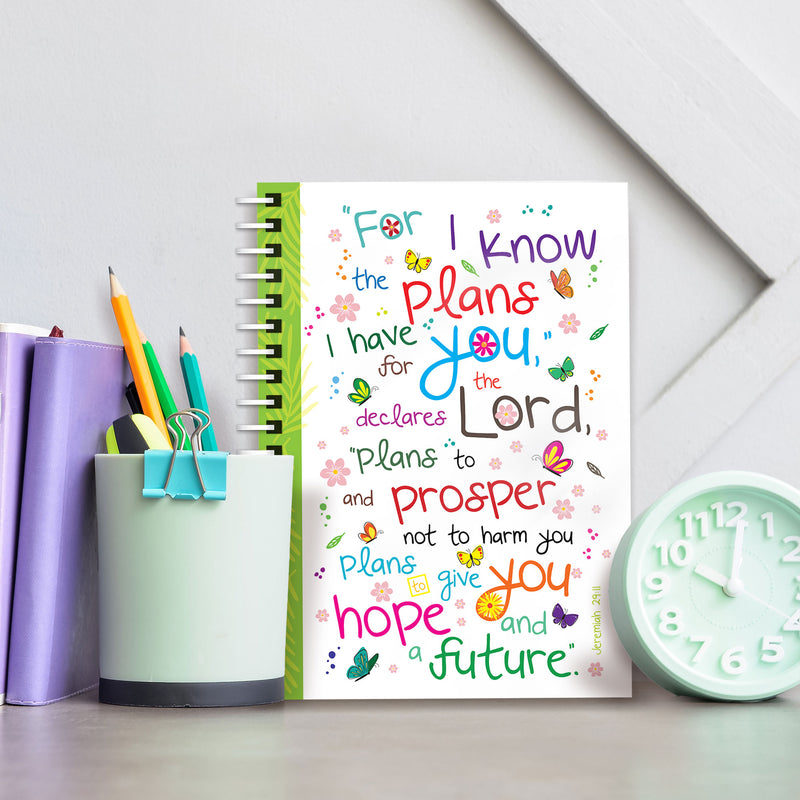 "For I know
the plans
I have for you,"
declares the Lord,
"plans to
and prosper
not to harm you
plans to give you
hope and
a future".
Jeremiah 29:11
11 12 1
10 2
9 3
8 4
7 6 5